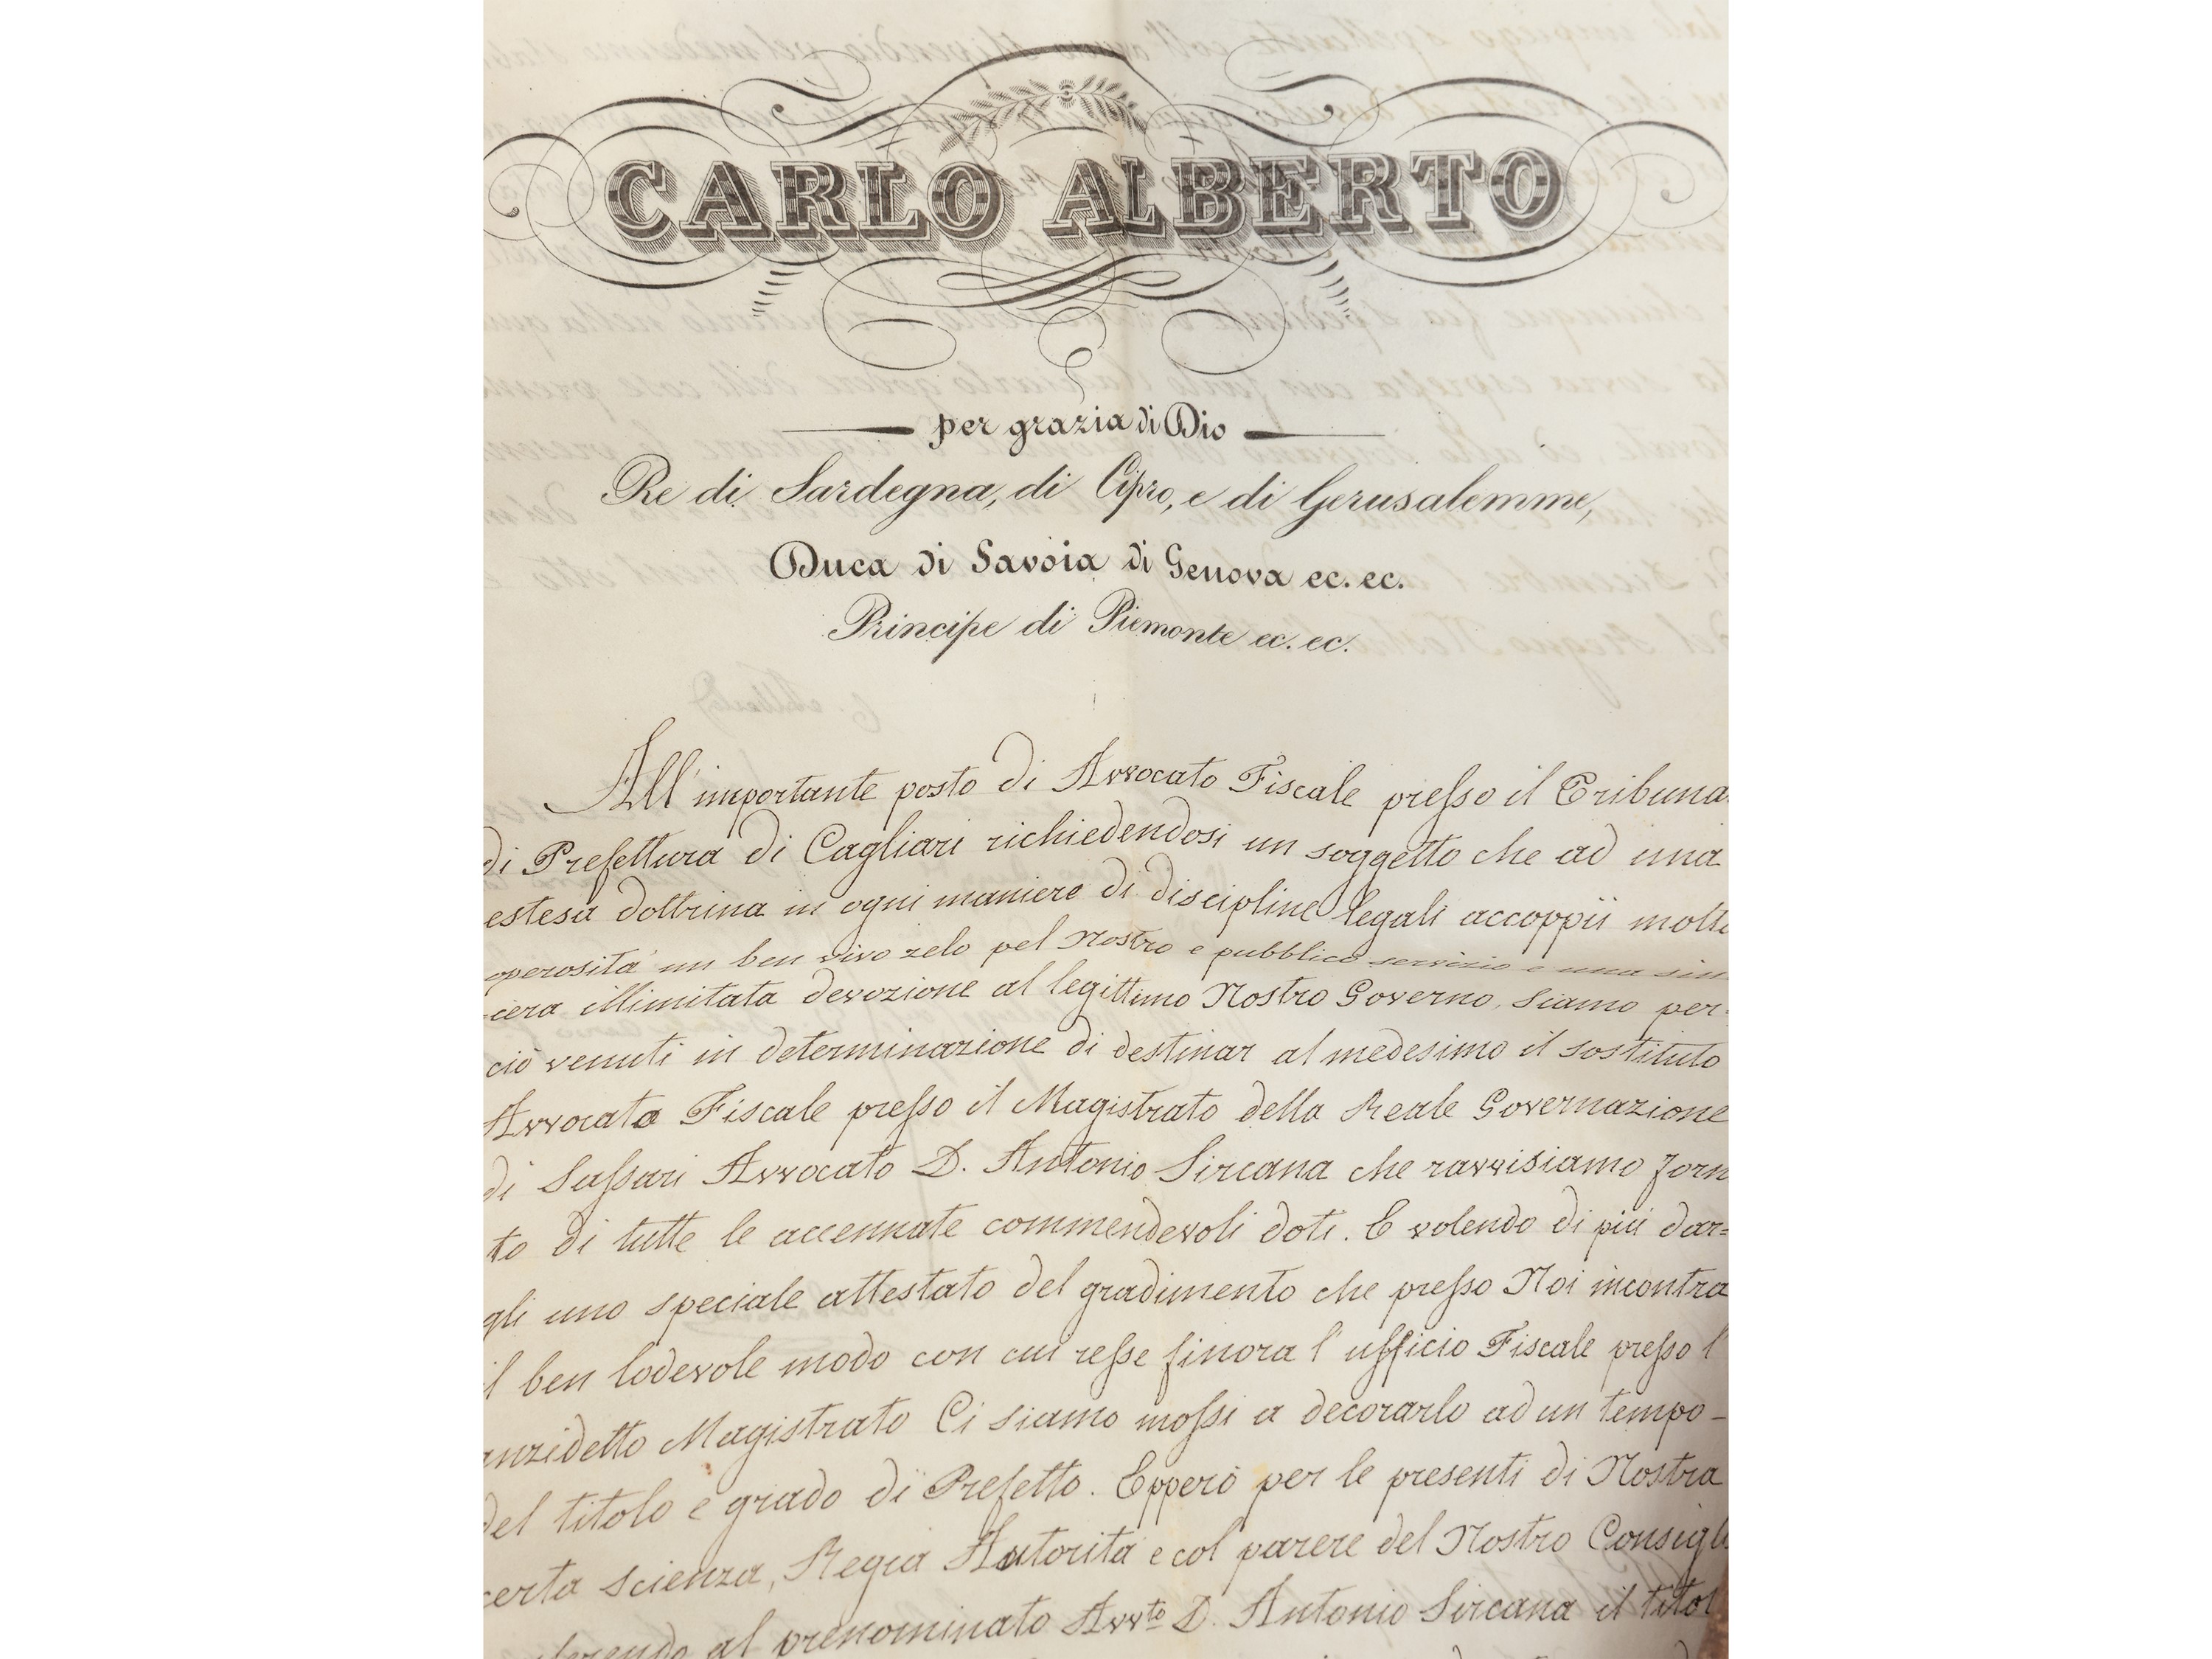 CARLO ALBERTO
per grazia di Dio
Re di Sardegna, di Cipro, e di Gerusalemme,
Duca di Savoia di Genova ec. ec.
Principe di Piemonte ec. ec.
All'importante posto di Avvocato Fiscale presso il Tribuna
di Prefettura di Cagliari richiedendosi un soggetto che ad una
estesa dottrina in ogni maniere di discipline legali accoppii molta
operosità un ben vivo zelo pel Nostro e pubblico servizio e una sin
cera illimitata devozione al legittimo Nostro Governo, siamo per=
ciò venuti in determinazione di destinar al medesimo il sostituto
Avvocato Fiscale presso il Magistrato della Reale Governazione
di Sassari Avvocato D. Antonio Sircana che ravvisiamo forn
to di tutte le accennate commendevoli doti. E volendo di più dar=
gli uno speciale attestato del gradimento che presso Noi incontra
il ben lodevole modo con cui resse finora l'ufficio Fiscale presso l'
anzidetto Magistrato Ci siamo mossi a decorarlo ad un tempo -
del titolo e grado di Prefetto. Epperò per le presenti di Nostra
certa scienza, Regia Autorità e col parere del Nostro Consigli
ferendo al prenominato Avvto D. Antonio Sircana il titol